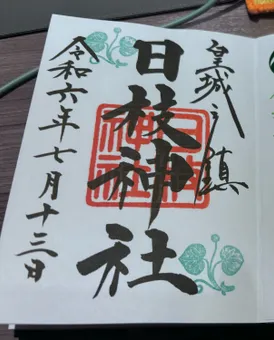 皇城之鎮
日枝神社
令和六年七月十三日
日枝神社